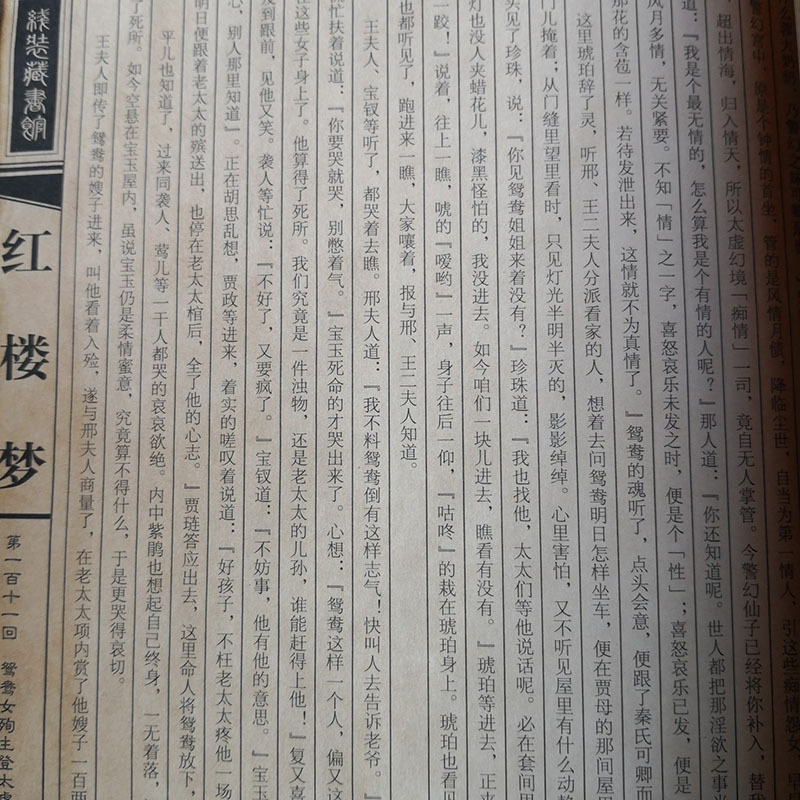 警幻宫中，原是个钟情的首坐，管的是风情月债，降临尘世，自当为第一情人，引这些痴情怨女，早
超出情海，归入情天，所以太虚幻境「痴情」一司，竟自无人掌管。今警幻仙子已经将你补入，替我
道：『我是个最无情的，怎么算我是个有情的人呢？』那人道：『你还知道呢。世人都把那淫欲之事当
风月多情，无关紧要。不知「情」之一字，喜怒哀乐未发之时，便是个「性」；喜怒哀乐已发，便是
那花的含苞一样。若待发泄出来，这情就不为真情了。』鸳鸯的魂听了，点头会意，便跟了秦氏可卿而
这里琥珀辞了灵，听邢、王二夫人分派看家的人，想着去问鸳鸯明日怎样坐车，便在贾母的那间屋里
门儿掩着；从门缝里望里看时，只见灯光半明半灭的，影影绰绰。心里害怕，又不听见屋里有什么动静
头见了珍珠，说：『你见鸳鸯姐姐来着没有？』珍珠道：『我也找他，太太们等他说话呢。必在套间里
灯也没人夹蜡花儿，漆黑怪怕的，我没进去。如今咱们一块儿进去，瞧看有没有。』琥珀等进去，正来
一跤！』说着，往上一瞧，唬的『嗳哟』一声，身子往后一仰，『咕咚』的栽在琥珀身上。琥珀也看见
也都听见了，跑进来一瞧，大家嚷着，报与邢、王二夫人知道。
王夫人、宝钗等听了，都哭着去瞧。邢夫人道：『我不料鸳鸯倒有这样志气！快叫人去告诉老爷。』
忙扶着说道：『你要哭就哭，别憋着气。』宝玉死命的才哭出来了。心想：『鸳鸯这样一个人，偏又这
在这些女子身上了。他算得了死所。我们究竟是一件浊物，还是老太太的儿孙，谁能赶得上他！』复又喜
及到跟前，见他又笑。袭人等忙说：『不好了，又要疯了。』宝钗道：『不妨事，他有他的意思。』宝玉
心，别人那里知道』。正在胡思乱想，贾政等进来，着实的嗟叹着说道：『好孩子，不枉老太太疼他一场
明日便跟着老太太的殡送出，也停在老太太棺后，全了他的心志。』贾琏答应出去，这里命人将鸳鸯放下，
平儿也知道了，过来同袭人、莺儿等一干人都哭的哀哀欲绝。内中紫鹃也想起自己终身，一无着落，
了死所。如今空悬在宝玉屋内，虽说宝玉仍是柔情蜜意，究竟算不得什么，于是更哭得哀切。
王夫人即传了鸳鸯的嫂子进来，叫他看着入殓，遂与邢夫人商量了，在老太太项内赏了他嫂子一百两
线装藏书馆
红楼梦
第一百十一回 鸳鸯女殉主登太虚